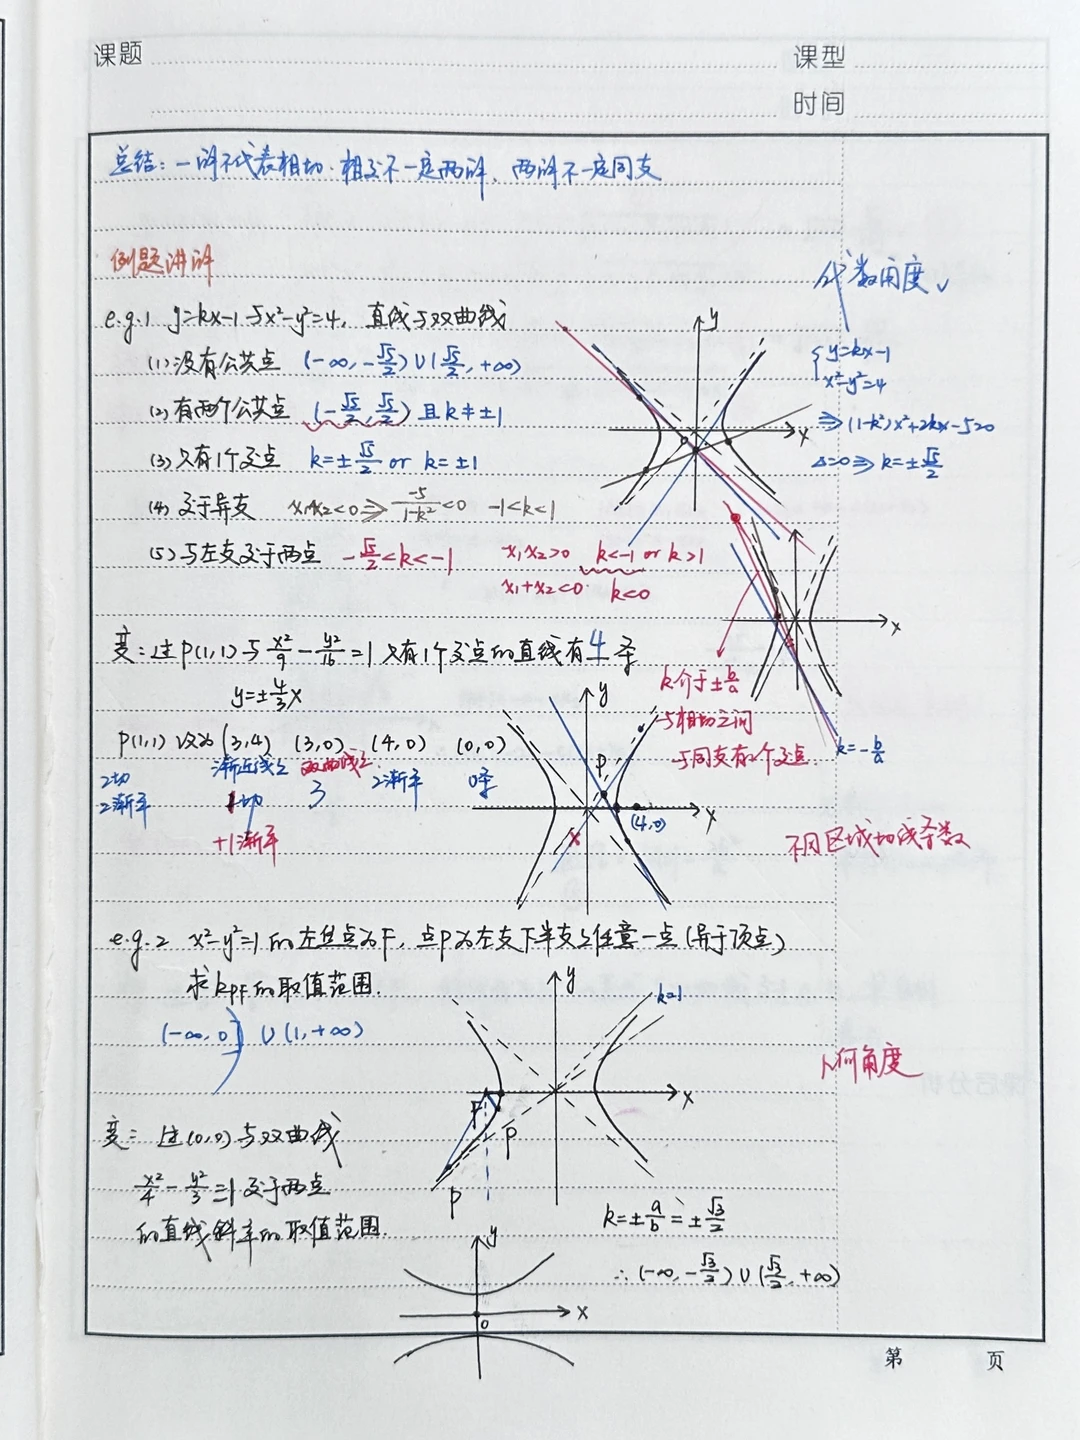 课题
课型
时间
总结：一解不代表相切．相交不一定两解．两解不一定同支
例题讲解
代数角度
e.g.1 y=kx-1与x²-y²=4，直线与双曲线
(1)没有公共点 (-∞,-√5/2)∪(√5/2,+∞)
(2)有两个公共点 (-√5/2,√5/2)且k≠±1
(3)只有1个交点 k=±√5/2 or k=±1
(4)交于异支 x₁x₂<0⇒-5/(1-k²)<0 -1<k<1
(5)与左支交于两点 -√5/2<k<-1 x₁x₂>0 k<-1 or k>1
x₁+x₂<0 k<0
y
x
{y=kx-1
x²-y²=4
⇒(1-k²)x²+2kx-5=0
Δ=0⇒k=±√5/2
x
变：过P(1,1)与x²/9-y²/16=1只有1个交点的直线有4条
y=±4/3x
k介于±b/a
与相切之间
与同支有2个交点
k=-b/a
P(1,1)改为(3,4) (3,0) (4,0) (0,0)
2切 渐近线上 双曲线上 2渐平 0条
2渐平 1切 3
+1渐平
y
P
x
(4,0)
x
不同区域切线条数
e.g.2 x²-y²=1的左焦点为F，点P为左支下半支上任意一点(异于顶点)
求kPF的取值范围.
(-∞,0)∪(1,+∞)
y
k=1
x
F
P
P
几何角度
变：过(0,0)与双曲线
x²/4-y²/3=1交于两点
的直线斜率的取值范围.
k=±a/b=±√3/2
∴(-∞,-√3/2)∪(√3/2,+∞)
y
x
0
第 页